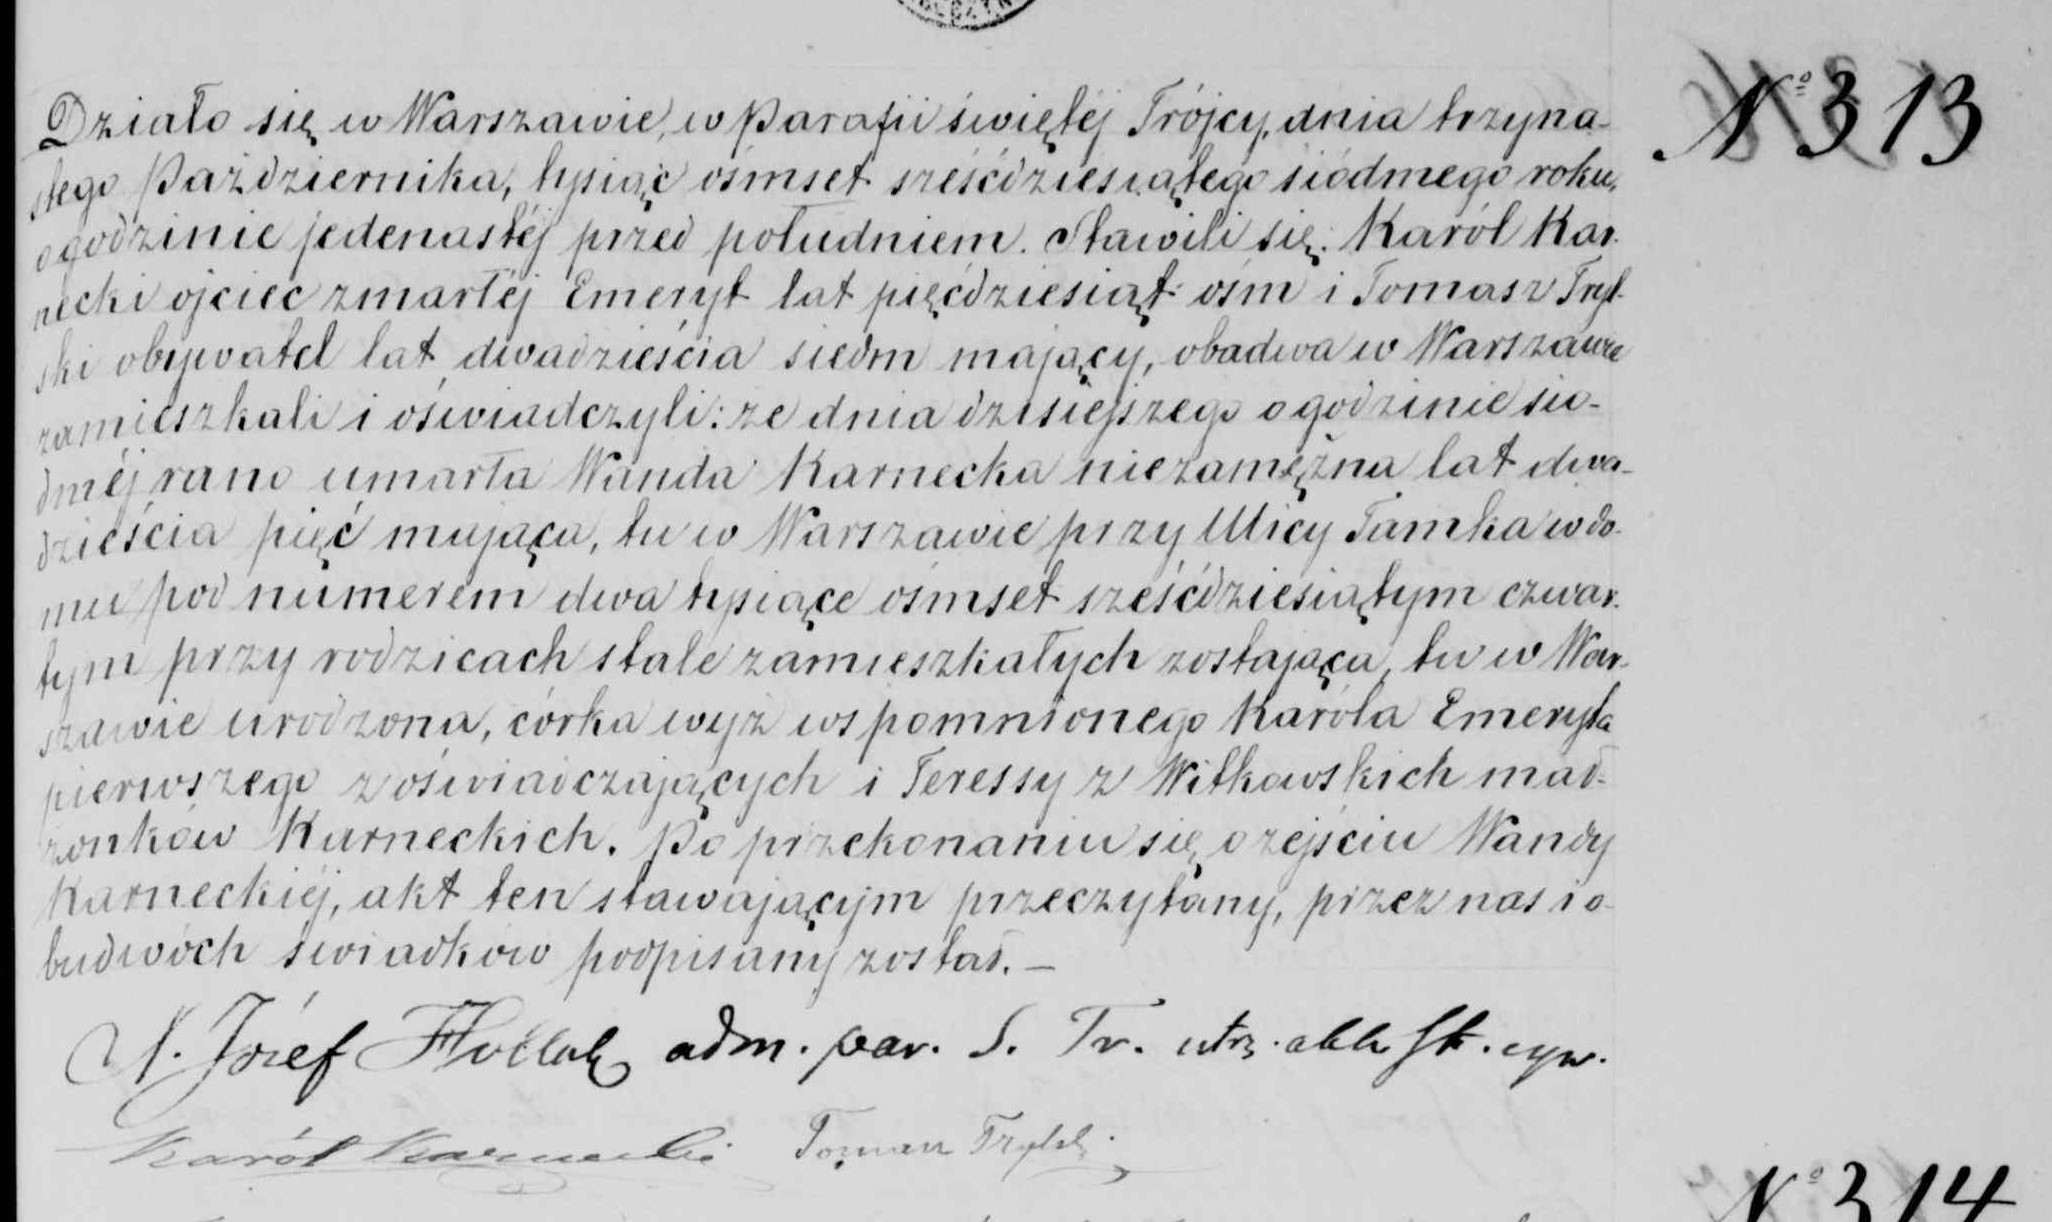 № 313
Działo się w Warszawie, w Parafii świętéj Trójcy, dnia trzyna-
stego Października, tysiąć ośmset sześćdziesiątego siódmego roku,
o godzinie jedenastéj przed południem. Stawili się: Karól Kar-
necki ojciec zmarłéj Emeryt lat pięćdziesiąt ośm i Tomasz Tryl-
ski obywatel lat dwadzieścia siedm mający, obadwa w Warszawie
zamieszkali i oświadczyli: że dnia dzisiejszego o godzinie sió-
dméj rano umarła Wanda Karnecka niezamężna lat dwa-
dzieścia pięć mająca, tu w Warszawie przy Ulicy Tamka w do-
mu pod numerem dwa tysiące ośmset sześćdziesiątym czwar-
tym przy rodzicach stale zamieszkałych zostająca, tu w War-
szawie urodzona, córka wyż wspomnionego Karóla Emeryta
pierwszego z oświadczających i Teressy z Witkowskich mał-
żonków Karneckich. Po przekonaniu się o zejściu Wandy
Karneckiéj, akt ten stawającym przeczytany, przez nas i o-
budwóch świadków podpisany został. —
X. Józef adm. par. S. Tr. utrz. akta St. cyw.
Karól Karnecki Tomasz Trylski
№ 314